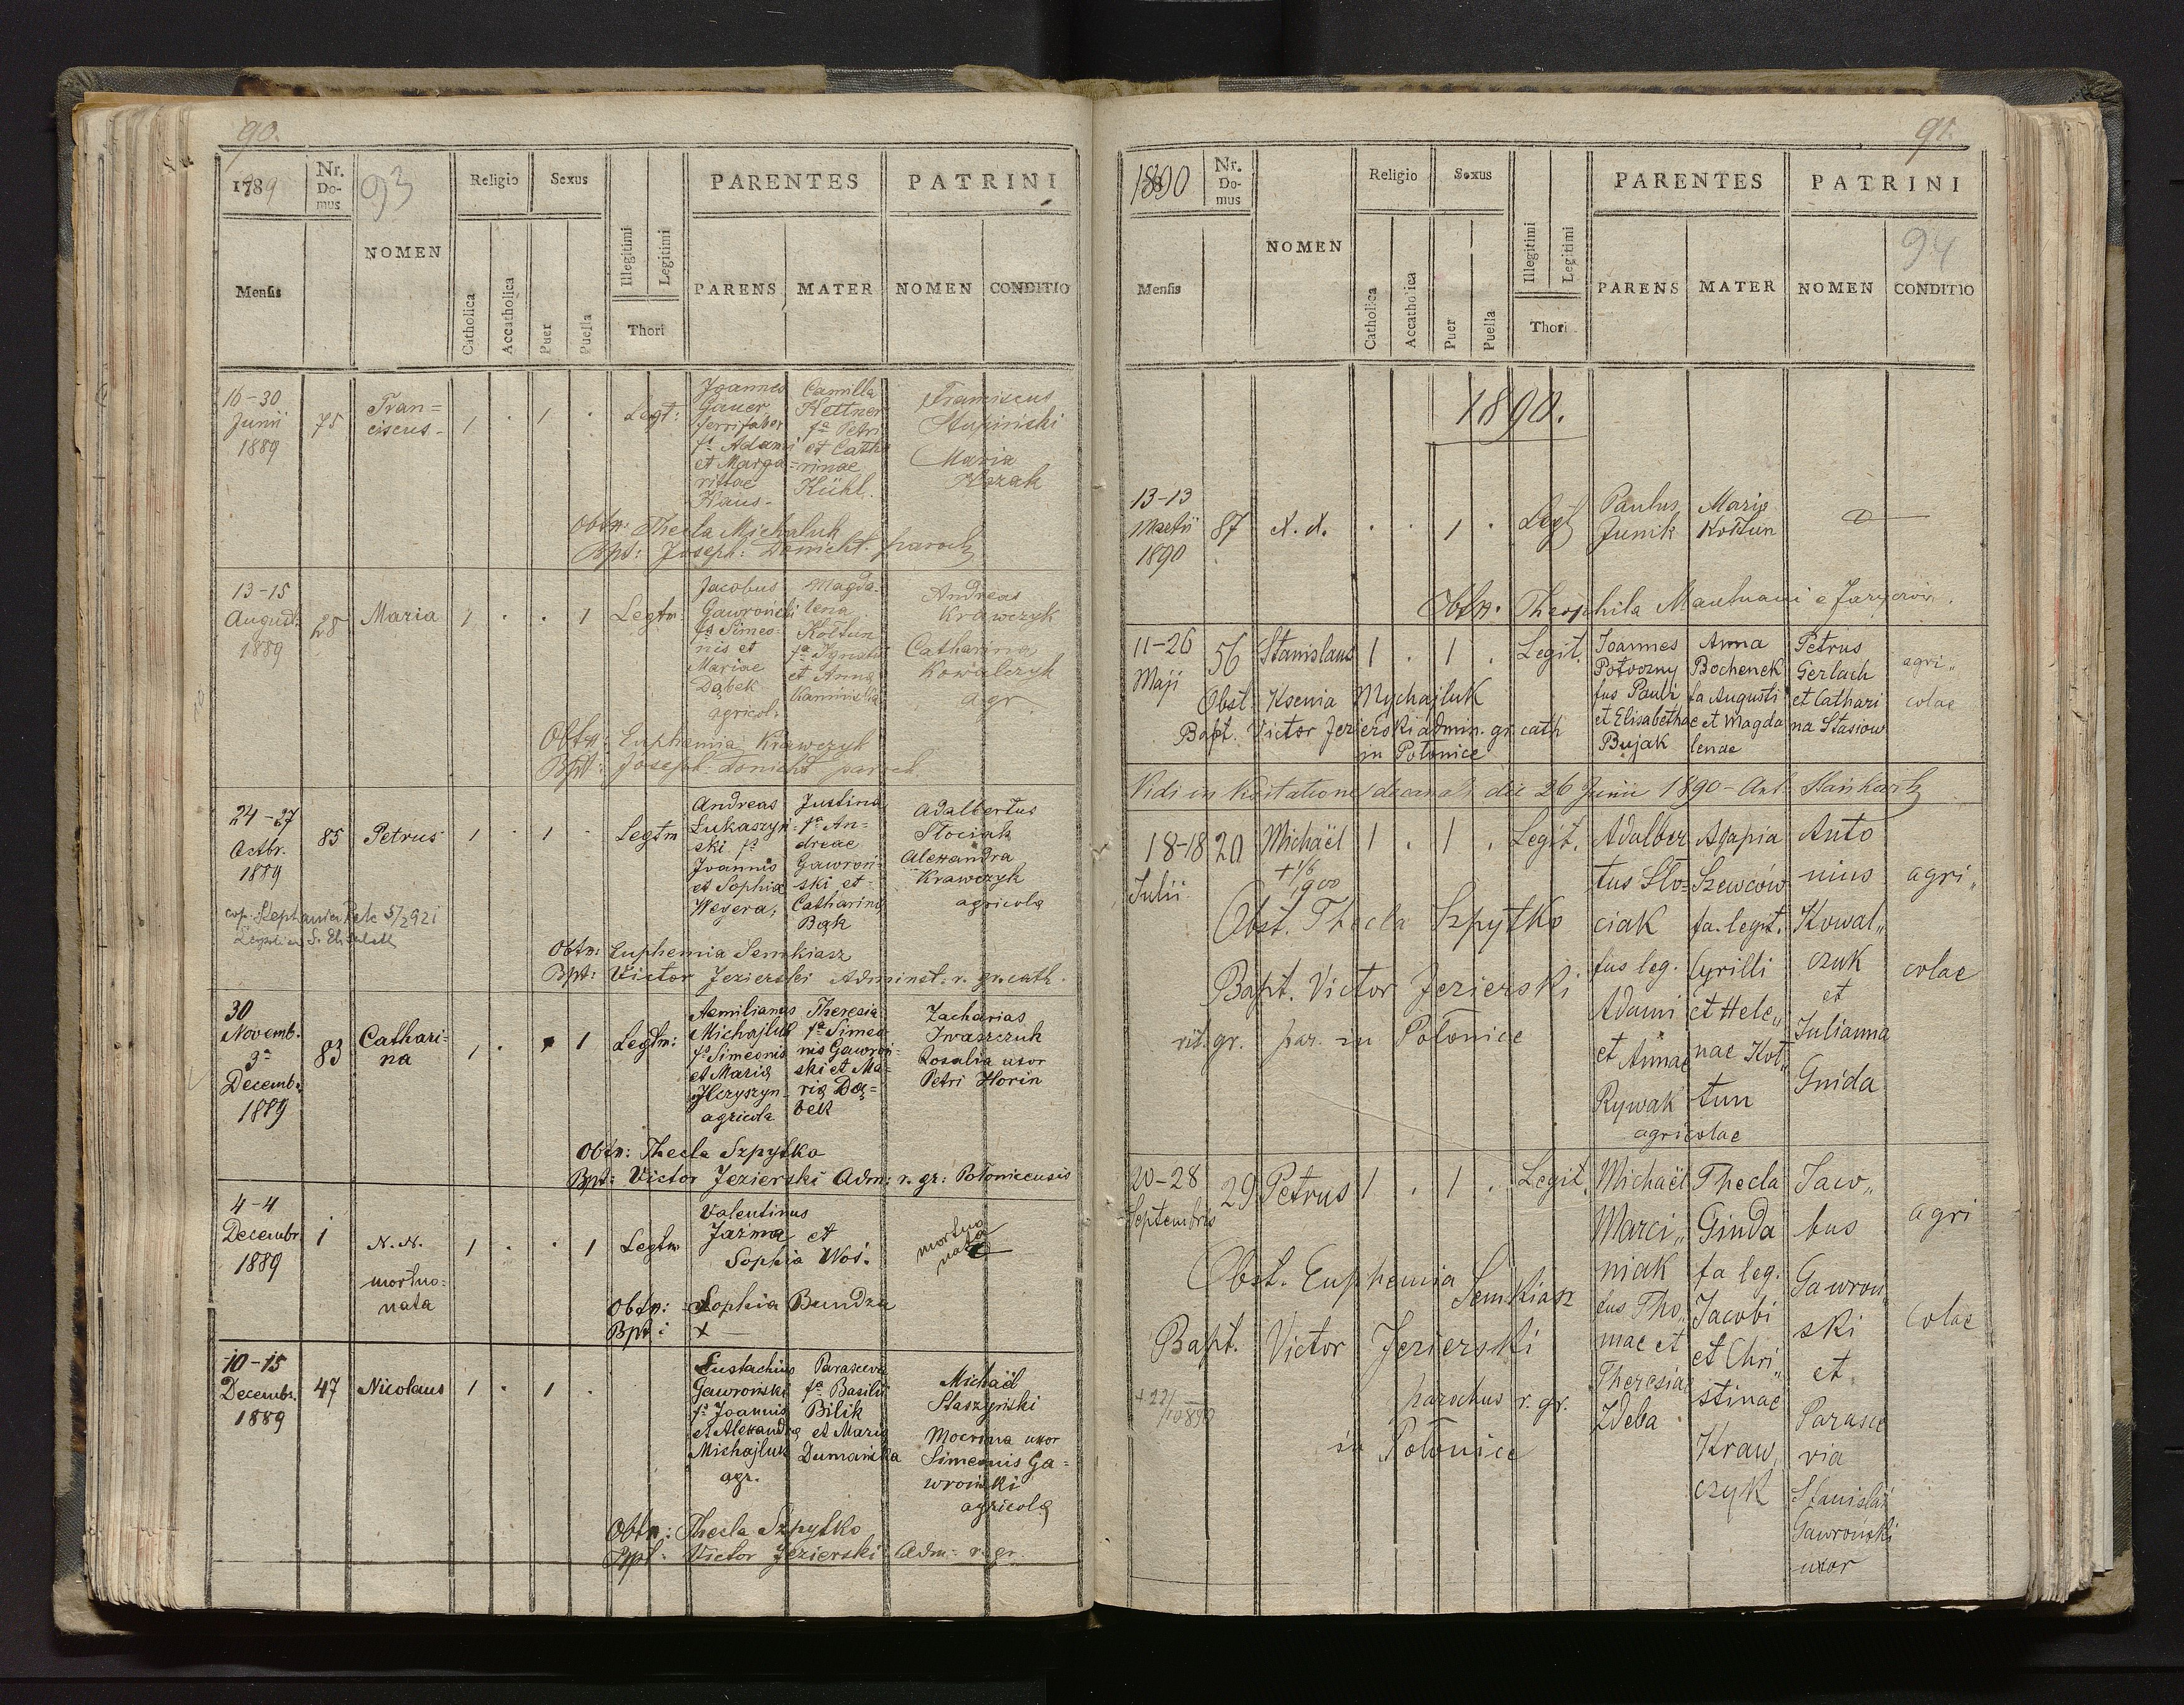 90.
1789
Nr. Domus
93
NOMEN
Religio
Sexus
PARENTES
PATRINI
Mensis
Catholica
Accatholica
Puer
Puella
Illegitimi
Legitimi
Thori
PARENS
MATER
NOMEN
CONDITIO
16-30
Junii
1889
75
Fran=
ciscus
1 . 1 .
Legt:
Joannes
Gauer
ferrifaber
fs Adami
et Marga
rittae
Kaus.
Camilla
Kettner
fa Petri
et Catha
=rinae
Kühl.
Franciscus
Maria
Obtr: Thecla Michaluk
Bpt: Joseph: Donicht. paroch
13-15
August.
1889
28
Maria
1 . . 1
Legtm:
Jacobus
Gawroński
fs Simeo-
nis et
Mariae
Dąbek
agricol:
Magda-
lena
Kołtun
fa Ignatii
et Anna
Kaminska
Andreas
Krawczyk
Catharina
Kowalczyk
agr.
Obtr: Euphemia Krawczyk
Bpt: Joseph. Donicht paroch.
24-27
Octbr.
1889
85
Petrus
1 . 1 .
Legtm
Andreas
Łukaszyń-
ski fs
Joannis
et Sophia
Wegera,
Justina
fa An-
dreae
Gawroń-
ski et
Catharina
Bąk
Adalbertus
Słociak
Alexandra
Krawczyk
agricola
cop. Stephania 5/2 921
Obtr: Euphemia Semkiasz
Bpt: Victor Jezierski Administ. r. gr. cath.
30
Novemb.
3a
Decemb.
1889
83
Cathari-
na
1 . . 1
Legtm:
Aemilianus
Michajluk
fs Simeonis
et Maria
Hryszyn
agricola
Theresia
fa Simeo
nis Gawroń-
ski et Ma-
ria Dą=
bek
Zacharias
Iwaszczuk
Rosalia uxor
Petri Horin
Obtr: Thecla Szpytko
Bpt: Victor Jezierski Adm: r. gr: Połonicensis
4-4
Decembr
1889
1
N. N.
mortuo-
nata
1 . . 1
Legtm
Valentinus
Jarma et
Sophia Woś.
mortuo
nata
Obtr: Sophia Bundza
Bpt: x —
10-15
Decembr.
1889
47
Nicolaus
1 . 1 .
Eustachius
Gawroński
fs Joannis
et Alexandra
Michajluk
agr.
Parasceva
fa Basilii
Bilik
et Maria
Dumańska
Michaël
Staszyński
Mocrina uxor
Simeonis Ga-
wroński
agricola
Obtr: Thecla Szpytko
Bpt: Victor Jezierski Adm: r. gr.
91.
1890
Nr. Domus
NOMEN
Religio
Sexus
PARENTES
PATRINI
94
Mensis
Catholica
Accatholica
Puer
Puella
Illegitimi
Legitimi
Thori
PARENS
MATER
NOMEN
CONDITIO
1890.
13-13
Martii
1890
87
N. N.
. . 1 .
Legt
Paulus
Junik
Maria
Kołtun
Obtr. Theophila
11-26
Maji
56
Stanislaus
1 . 1 .
Legit.
Joannes
Potoczny
fus Pauli
et Elisabethae
Bujak
Anna
Bochenek
fa Augusti
et Magda
lenae
Petrus
Gerlach
et Cathari
na Stasiow
agri„
colae
Obst. Ksenia Mychajluk
Bapt. Victor Jezierski admin. gr. cath
in Połonice
Vidi in Visitatione decanali die 26 Junii 1890 - Ant.
18-18
Julii
20
Michaël
+ 1/6
1900
1 . 1 .
Legit.
Adalber
tus Sło-
ciak
fus leg.
Adami
et Annae
Rywak
agricolae
Agapia
Szewców
fa. legit.
Cyrilli
et Hele„
nae Koł„
tun
Anto
nius
Kowal„
czuk
et
Julianna
Gnida
agri„
colae
Obst. Thecla Szpytko
Bapt. Victor Jezierski
rit. gr. par. in Połonice
20-28
Septembris
29
Petrus
1 . 1 .
Legit.
Michaël
Marci„
niak
fus Tho„
mae et
Theresiae
Zdeba
Thecla
Ginda
fa leg.
Jacobi
et Chri„
stinae
Kraw„
czyk
Jaco„
bus
Gawron„
ski
et
Parasce
via
Stanislai
Gawroński
uxor
agri
colae
Obst. Euphemia
Semkiasz
Bapt. Victor Jezierski
parochus r. gr.
in Połonice
+ 22/10 890